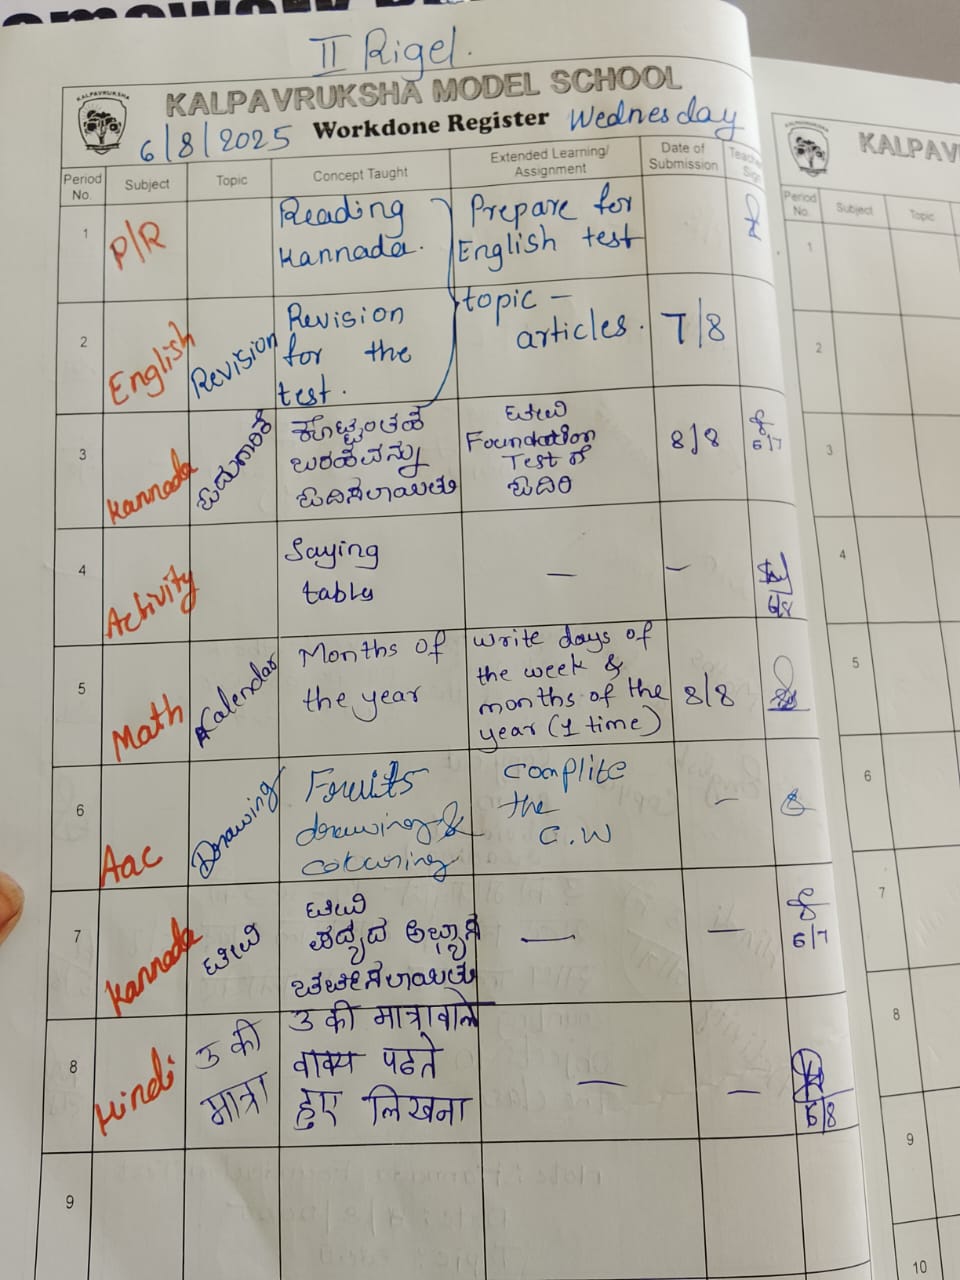 II Rigel.
KALPAVRUKSHA MODEL SCHOOL
KALPAVRUKSHA
6/8/2025 Workdone Register Wednesday
Period No. Subject Topic Concept Taught Extended Learning/ Assignment Date of Submission
1 P/R Reading Kannada. Prepare for English test
2 English Revision Revision for the test. topic - articles. 7/8
3 Kannada ಕೊಟ್ಟಂತಹ ಬರಹವನ್ನು ಓದಿಸಲಾಯಿತು Foundation Test ಗೆ ಓದಿರಿ 8/8 6/7
4 Activity Saying table — — 6/8
5 Math Kalendar Months of the year write days of the week & months of the year (1 time) 8/8
6 Aac Drawing Fruits drawing & colouring complite the C.W –
7 Kannada ಪದ್ಯದ ಅಭ್ಯಾಸ — — 6/7
8 Hindi उ की मात्रा उ की मात्रावाले वाक्य पढते हुए लिखना — — 6/8
9
KALPAV
Period No. Subject Topic
1
2
3
4
5
6
7
8
9
10